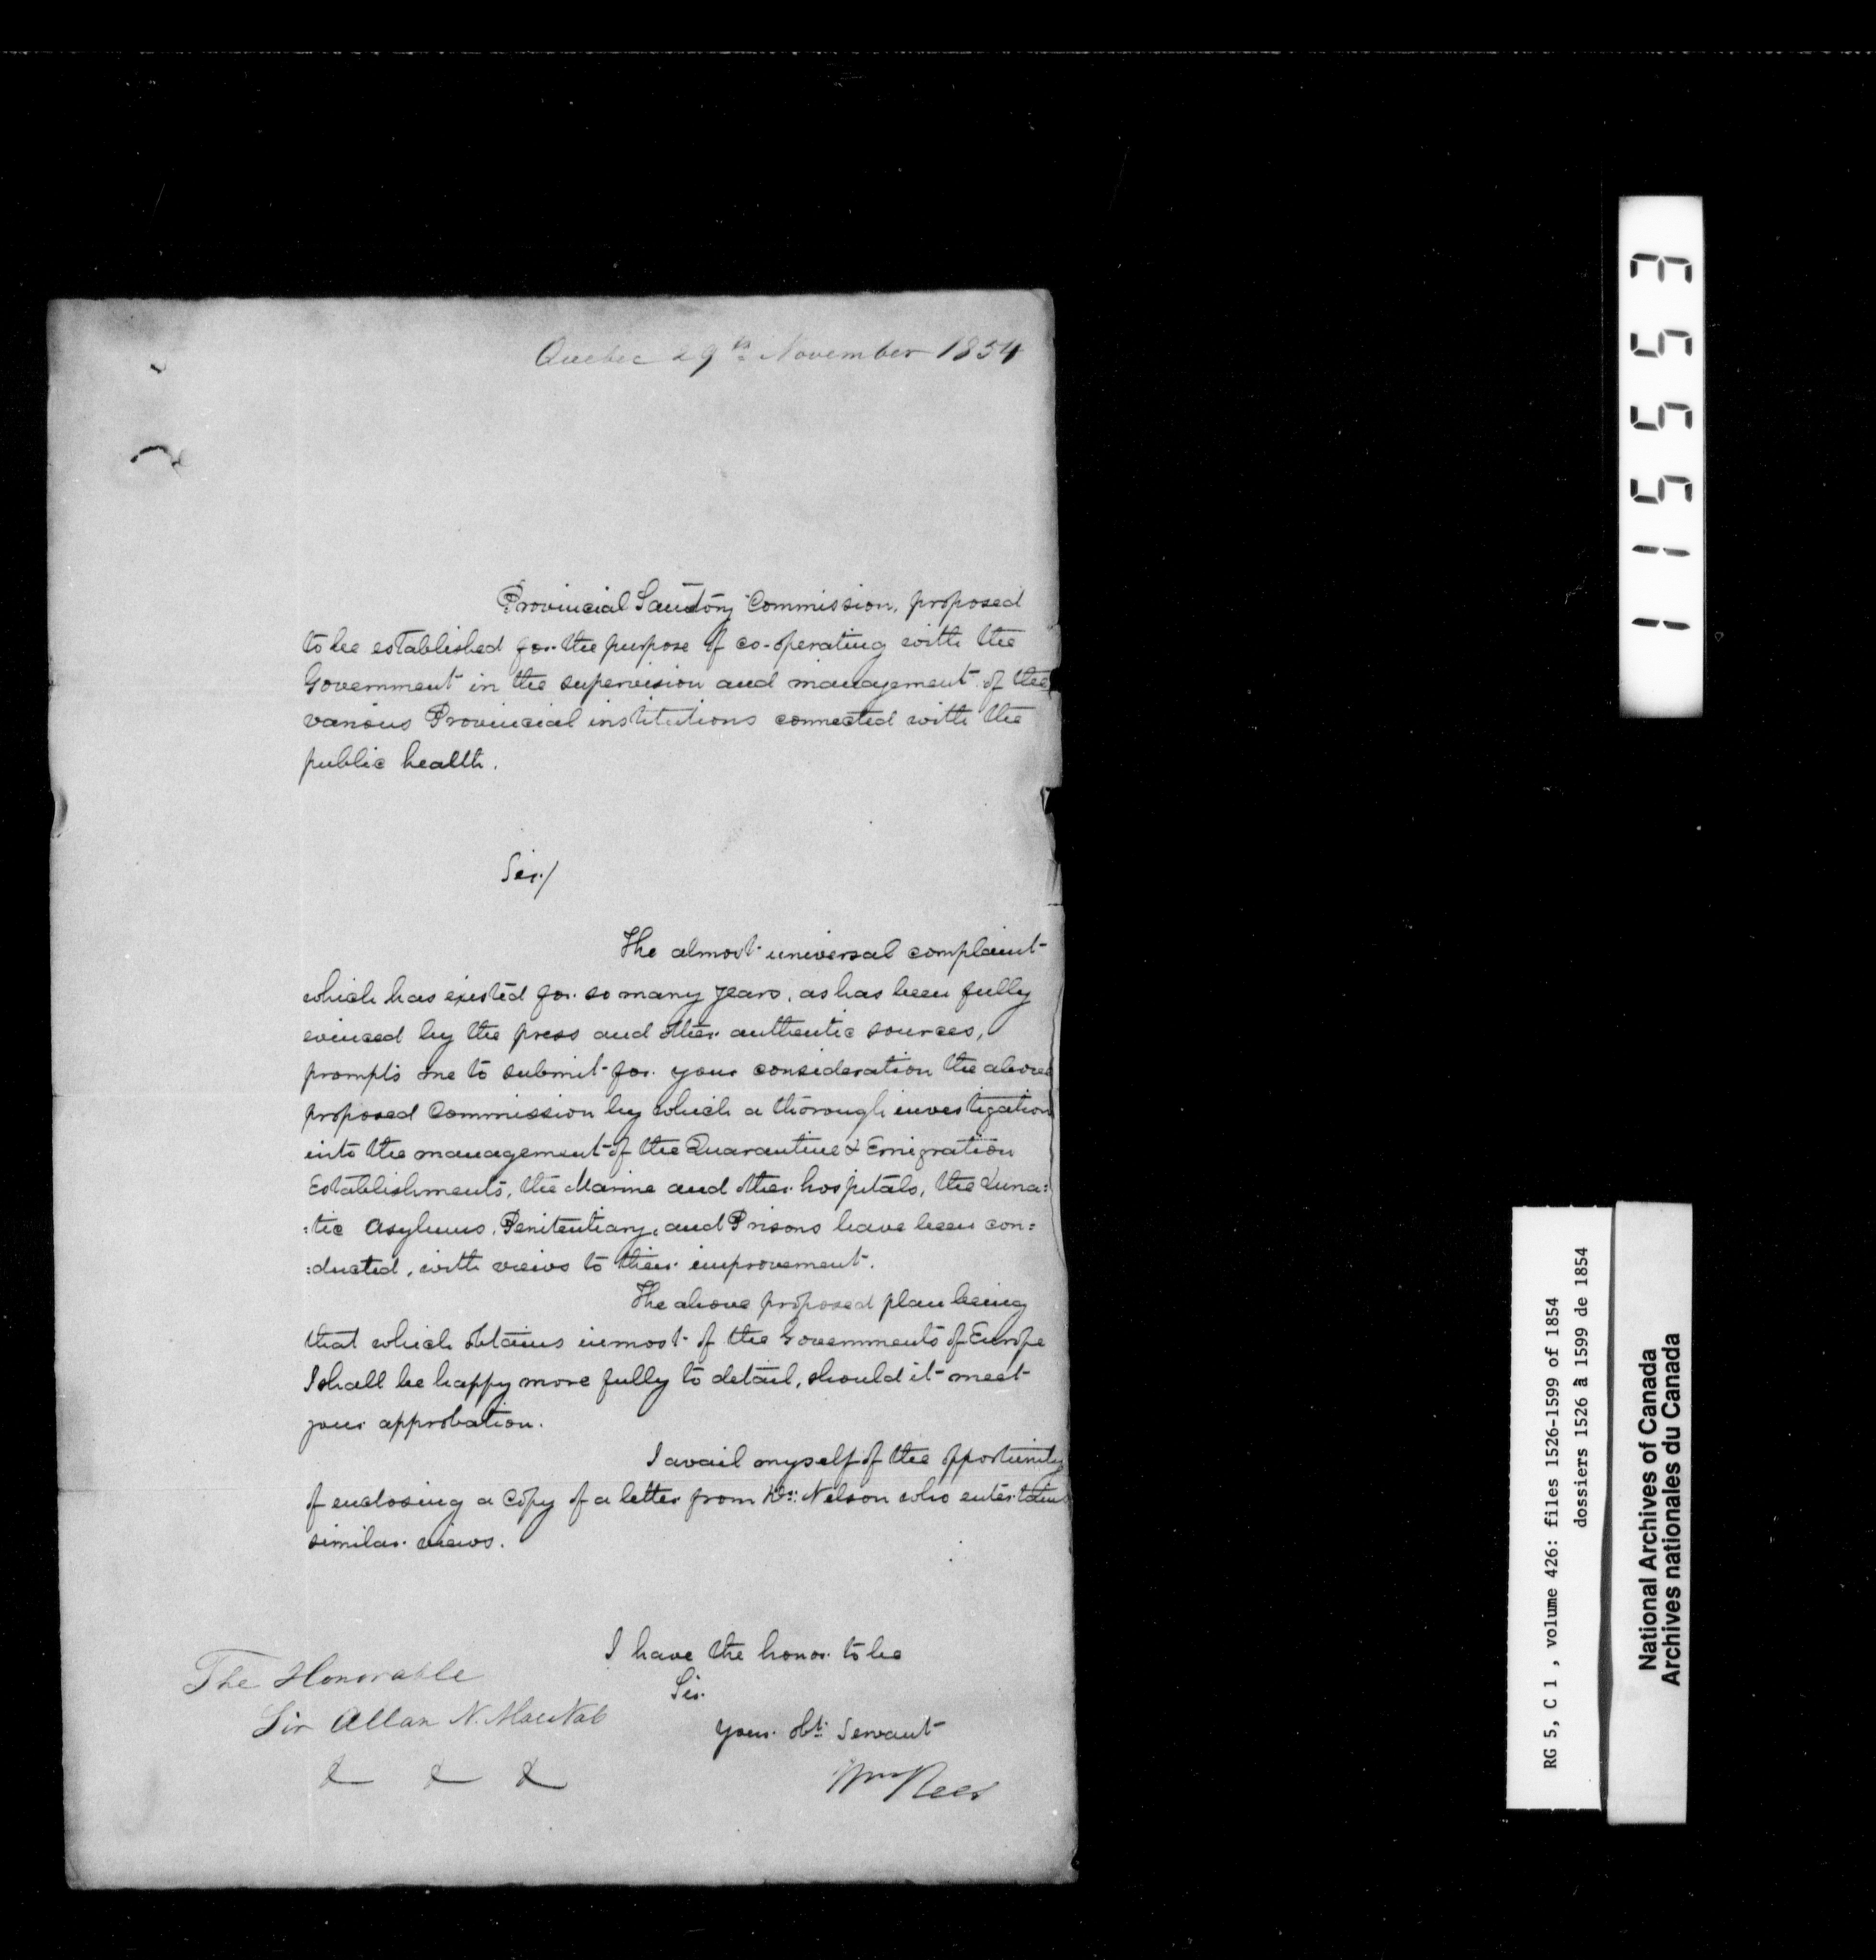 Quebec 29th November 1854
Provincial Sanitory Commission, proposed
to be established for the purpose of co-operating with the
Government in the supervision and management of the
various Provincial institutions connected with the
public health.
Sir/
The almost universal complaint
which has existed for so many years, as has been fully
evinced by the press and other authentic sources,
prompts me to submit for your consideration the above
proposed Commission by which a thorough investigation
into the management of the Quarantine & Emigration
Establishments, the Marine and other hospitals, the Luna:
:tic Asylums, Penitentiary, and Prisons have been con:
:ducted, with views to their improvement.
The above proposed plan being
that which obtains in most of the Governments of Europe
I shall be happy more fully to detail, should it meet
your approbation.
I avail myself of the opportunity
of enclosing a Copy of a letter from Dr: Nelson who entertains
similar views.
I have the honor to be
Sir
your obt: Servant
Wm Rees
The Honorable
Sir Allan N. MacNab
& & &
115553
RG 5, C 1 , volume 426: files 1526-1599 of 1854
dossiers 1526 à 1599 de 1854
National Archives of Canada
Archives nationales du Canada